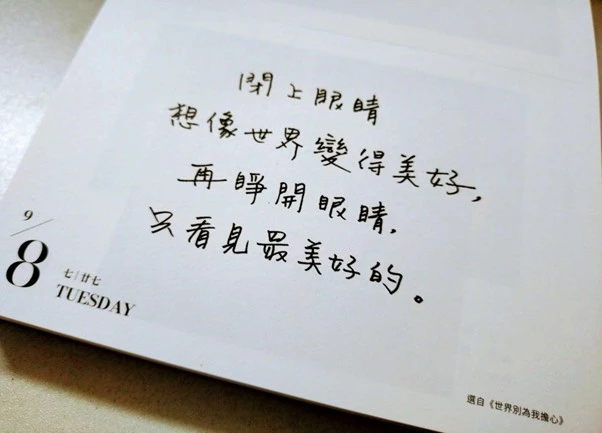 閉上眼睛
想像世界變得美好,
再睜開眼睛,
只看見最美好的。
9
8
七|廿七
TUESDAY
選自《世界別為我擔心》